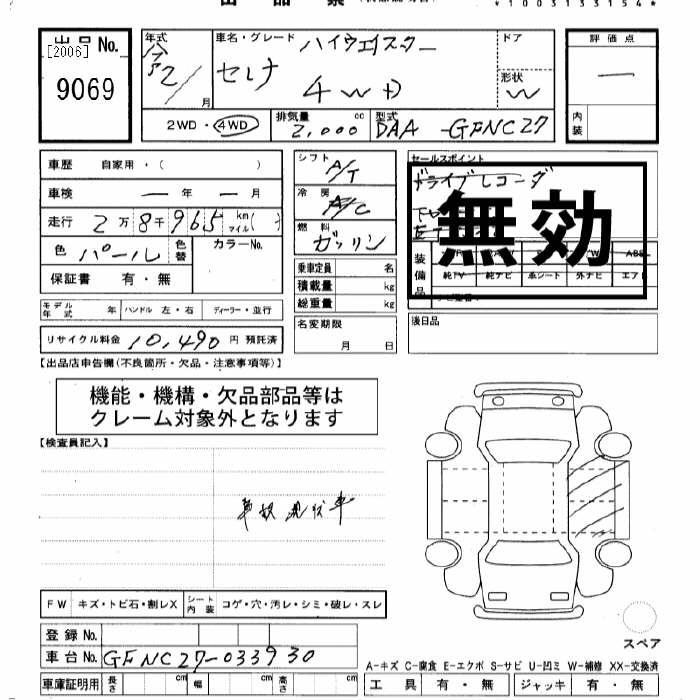 *1003133154*
出品No. [2006] 9069
年式 令2 / 月
車名・グレード ハイウェイスター
セレナ 4WD
ドア
形状 W
2WD・4WD 排気量 2,000 cc 型式 DAA-GFNC27
評価点 ー
内装
車歴 自家用・( )
車検 ー年ー月
走行 2万8千965 km マイル( )
色 パール 色替 カラーNo.
保証書 有・無
シフト A/T
冷房 A/C
燃料 ガソリン
乗車定員 名
積載量 kg
総重量 kg
セールスポイント
ドライブレコーダ
無効
装備品 ABS
純TV 純ナビ 革シート 外ナビ エアB
モデル年式 年 ハンドル 左・右 ディーラー・並行
リサイクル料金 10,490 円 預託済
名変期限 月 日
後日品
【出品店申告欄(不良箇所・欠品・注意事項等)】
機能・機構・欠品部品等は
クレーム対象外となります
【検査員記入】
事故現状車
FW キズ・トビ石・割レX シート内装 コゲ・穴・汚レ・シミ・破レ・スレ
登録No.
車台No. GFNC27-033930
スペア
A-キズ C-腐食 E-エクボ S-サビ U-凹ミ W-補修 XX-交換済
車庫証明用 長さ cm 幅 cm 高さ cm
工具 有・無 ジャッキ 有・無